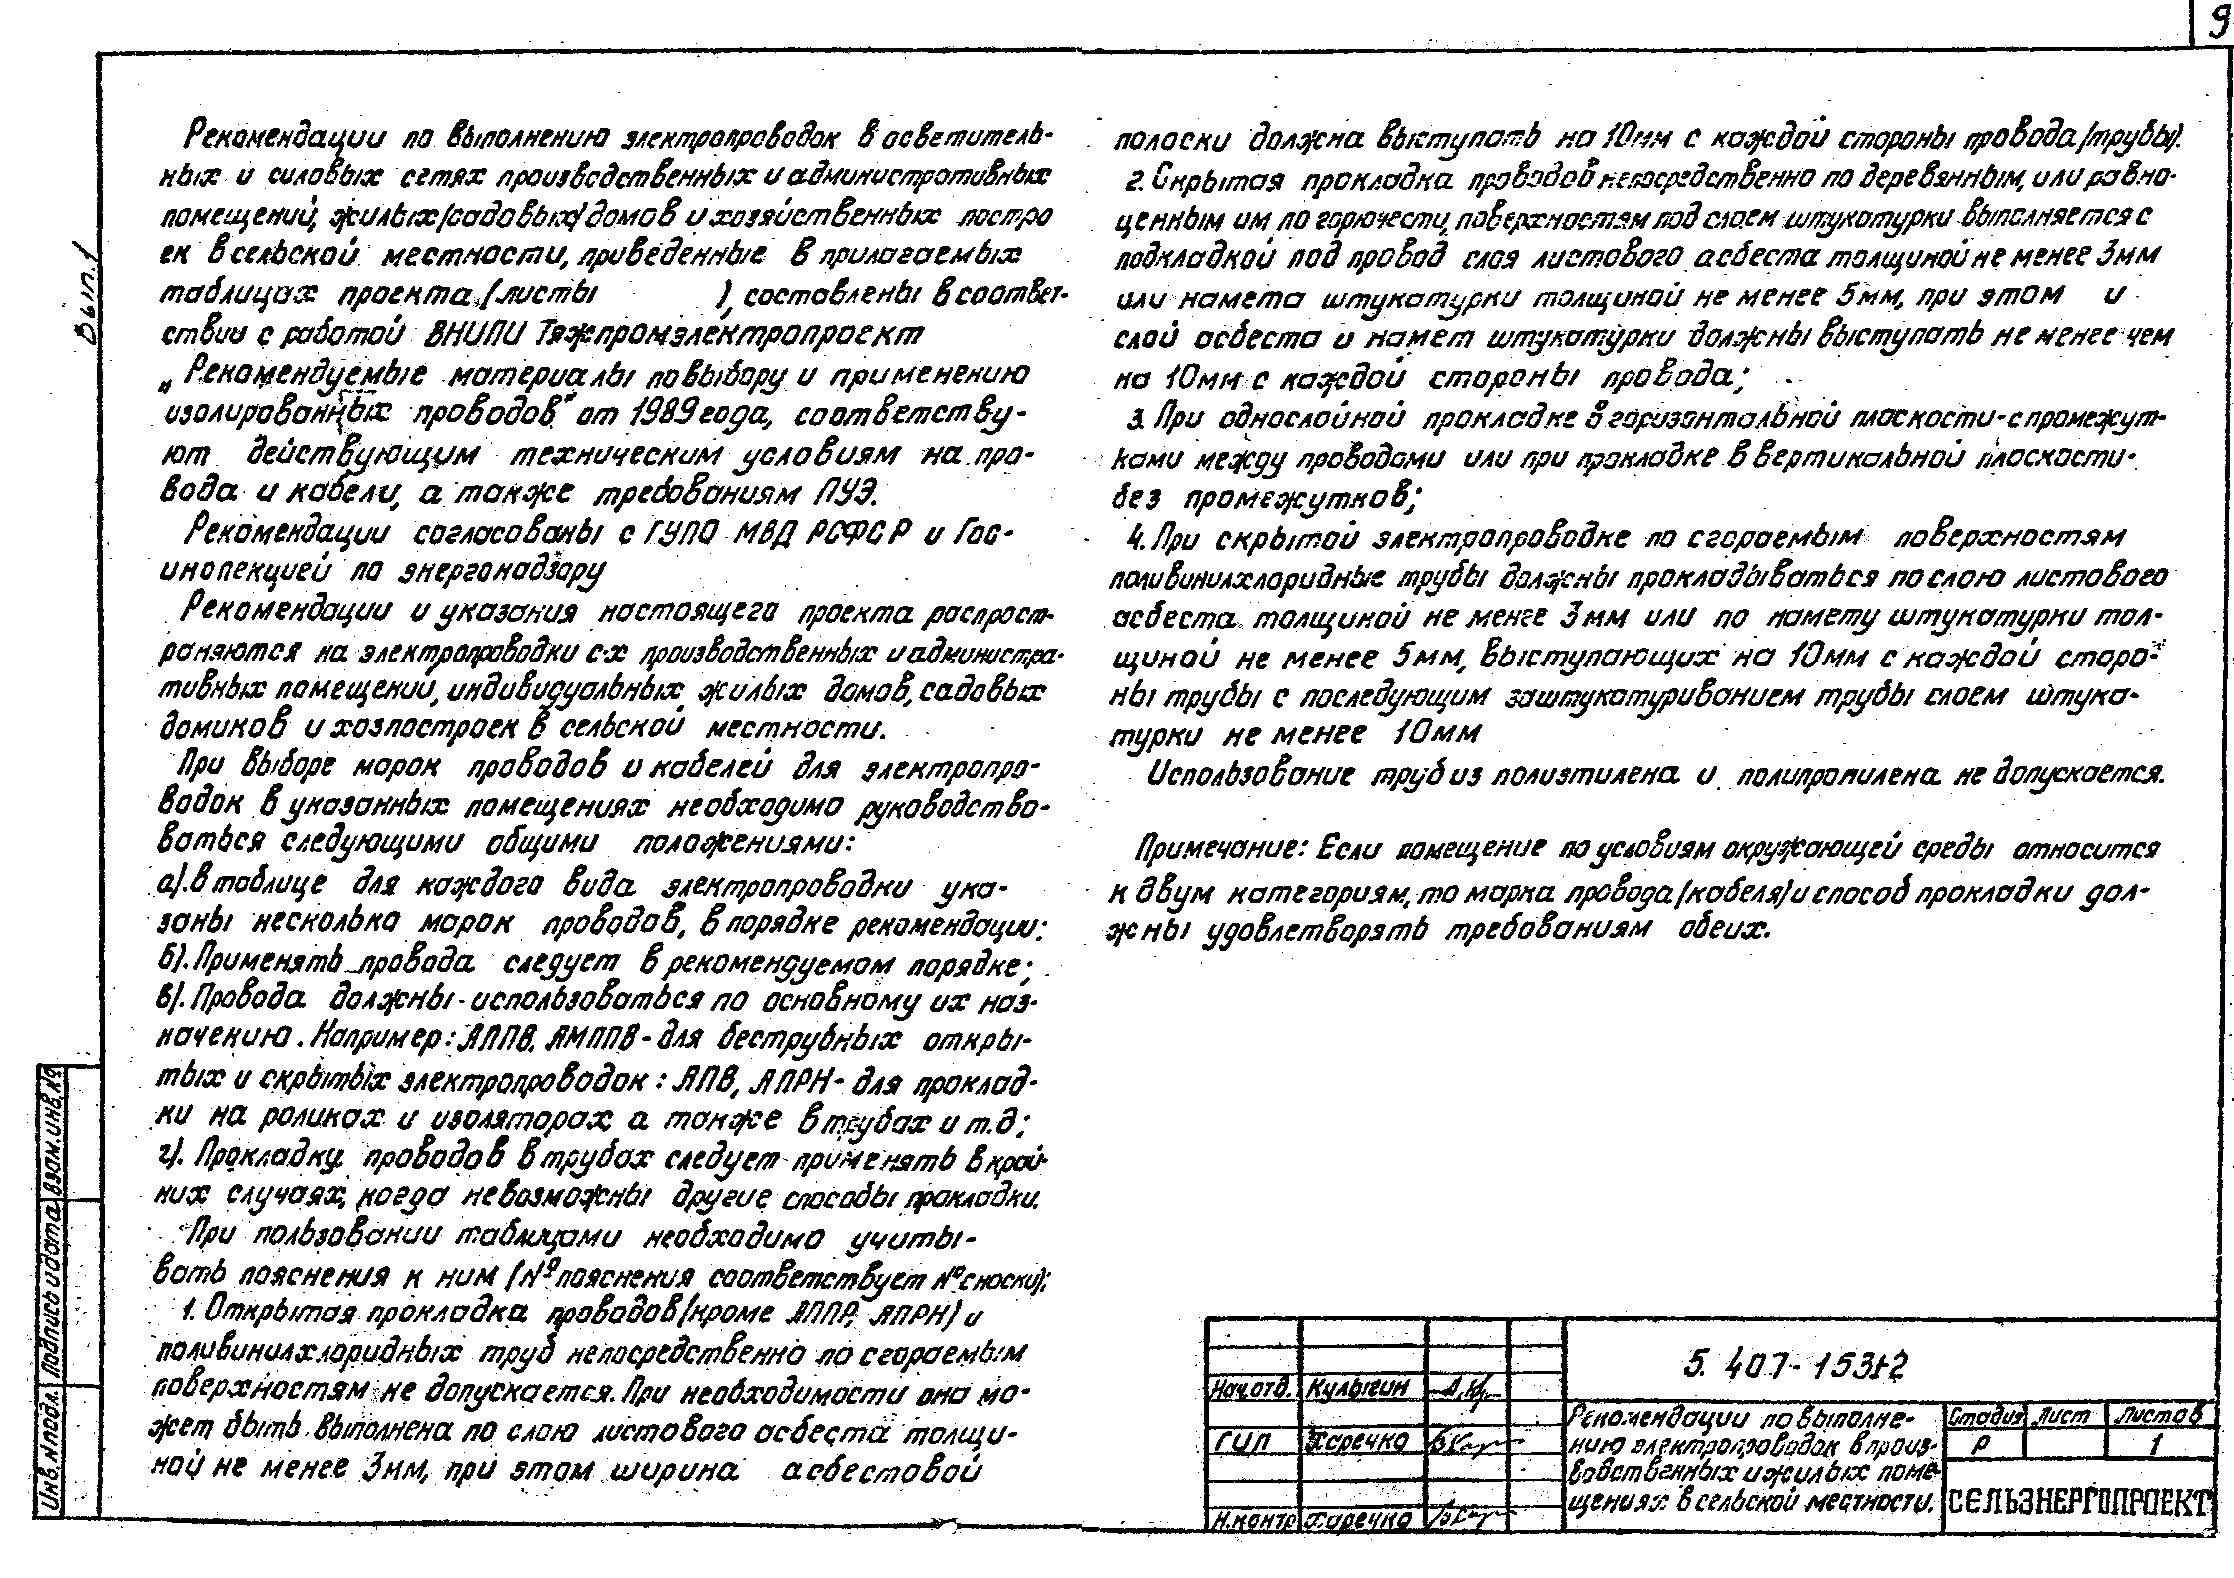 9
Вып.1
Рекомендации по выполнению электропроводок в осветитель-
ных и силовых сетях производственных и административных
помещений, жилых/садовых/домов и хозяйственных постро
ек в сельской местности, приведенные в прилагаемых
таблицах проекта (листы ), составлены в соответ-
ствии с работой ВНИПИ Тяжпромэлектропроект
„Рекомендуемые материалы по выбору и применению
изолированных проводов" от 1989 года, соответству-
ют действующим техническим условиям на про-
вода и кабели, а также требованиям ПУЭ.
Рекомендации согласованы с ГУПО МВД РСФСР и Гос-
инспекцией по энергонадзору
Рекомендации и указания настоящего проекта распрост-
раняются на электропроводки с-х производственных и администра-
тивных помещений, индивидуальных жилых домов, садовых
домиков и хозпостроек в сельской местности.
При выборе марок проводов и кабелей для электропро-
водок в указанных помещениях необходимо руководство-
ваться следующими общими положениями:
а). в таблице для каждого вида электропроводки ука-
заны несколько марок проводов, в порядке рекомендации;
б). Применять провода следует в рекомендуемом порядке;
в). Провода должны использоваться по основному их наз-
начению. Например: АППВ, АМППВ - для беструбных откры-
тых и скрытых электропроводок: АПВ, АПРН - для проклад-
ки на роликах и изоляторах, а также в трубах и т.д;
г). Прокладку проводов в трубах следует применять в край-
них случаях, когда невозможны другие способы прокладки.
При пользовании таблицами необходимо учиты-
вать пояснения к ним (№ пояснения соответствует № сноски):
1. Открытая прокладка проводов (кроме АППР, АПРН) и
поливинилхлоридных труб непосредственно по сгораемым
поверхностям не допускается. При необходимости она мо-
жет быть выполнена по слою листового асбеста толщи-
ной не менее 3мм, при этом ширина асбестовой
полоски должна выступать на 10мм с каждой стороны провода (трубы).
2. Скрытая прокладка проводов непосредственно по деревянным, или равно-
ценным им по горючести, поверхностям под слоем штукатурки выполняется с
подкладкой под провод слоя листового асбеста толщиной не менее 3мм
или намета штукатурки толщиной не менее 5мм, при этом и
слой асбеста и намет штукатурки должны выступать не менее чем
на 10мм с каждой стороны провода;
3. При однослойной прокладке в горизонтальной плоскости - с промежут-
ками между проводами или при прокладке в вертикальной плоскости -
без промежутков;
4. При скрытой электропроводке по сгораемым поверхностям
поливинилхлоридные трубы должны прокладываться по слою листового
асбеста толщиной не менее 3мм или по намету штукатурки тол-
щиной не менее 5мм, выступающих на 10мм с каждой сторо-
ны трубы с последующим заштукатуриванием трубы слоем штука-
турки не менее 10мм
Использование труб из полиэтилена и полипропилена не допускается.
Примечание: Если помещение по условиям окружающей среды относится
к двум категориям, то марка провода (кабеля) и способ прокладки дол-
жны удовлетворять требованиям обеих.
Инв.№подл. Подпись и дата Взам.инв.№
5.407-153.1-2
Нач.отд. Кулыгин
ГИП Харечко
Н.контр Харечко
Рекомендации по выполне-
нию электропроводок в произ-
водственных и жилых поме-
щениях в сельской местности.
Стадия Лист Листов
Р 1
СЕЛЬЭНЕРГОПРОЕКТ